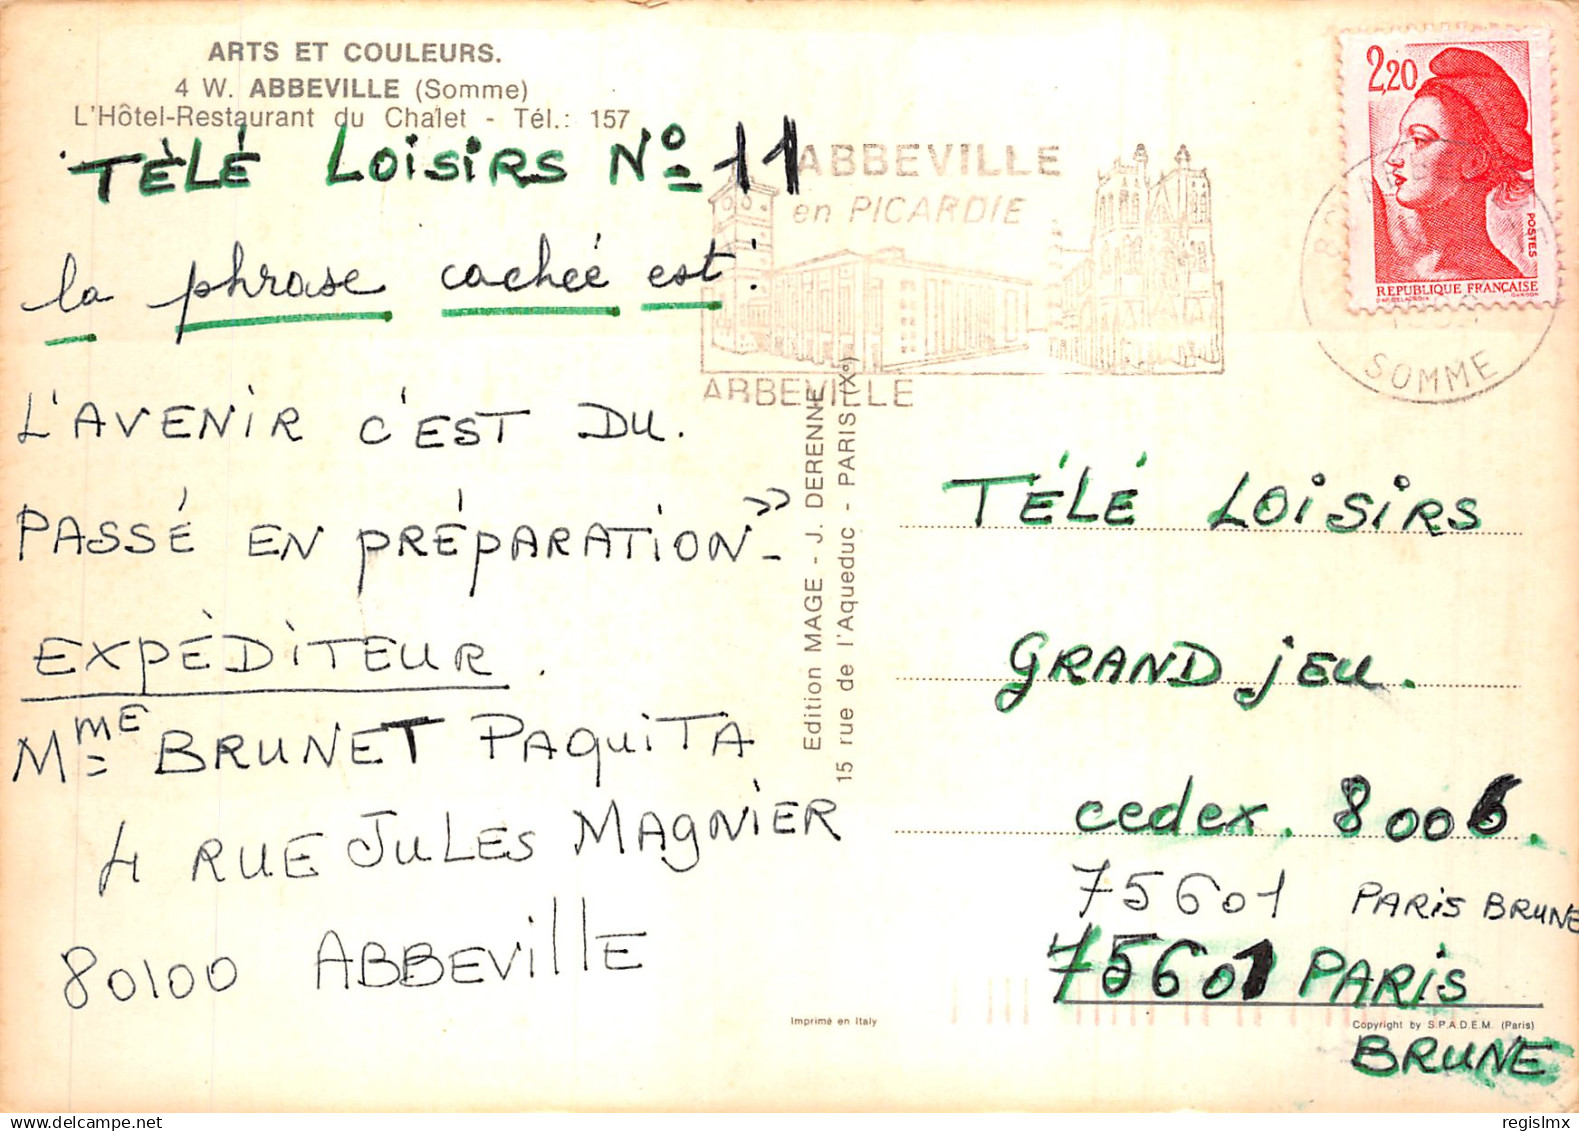 ARTS ET COULEURS.
4 W. ABBEVILLE (Somme)
L'Hôtel-Restaurant du Chalet - Tél.: 157
TÉLÉ LOISIRS Nº 11
la phrase cachée est:
L'AVENIR C'EST DU.
PASSÉ EN PRÉPARATION"-
EXPÉDITEUR.
Mme BRUNET PAQUITA
4 RUE JULES MAGNIER
80100 ABBEVILLE
ABBEVILLE
en PICARDIE
ABBEVILLE
Edition MAGE - J. DERENNE
15 rue de l'Aqueduc - PARIS (Xe)
Imprimé en Italy
2,20
POSTES
REPUBLIQUE FRANÇAISE
D'AP. DELACROIX GANDON
SOMME
TÉLÉ LOISIRS
GRAND JEU.
cedex. 8006.
75601 PARIS BRUNE
75601 PARIS
Copyright by S.P.A.D.E.M. (Paris)
BRUNE
regislmx